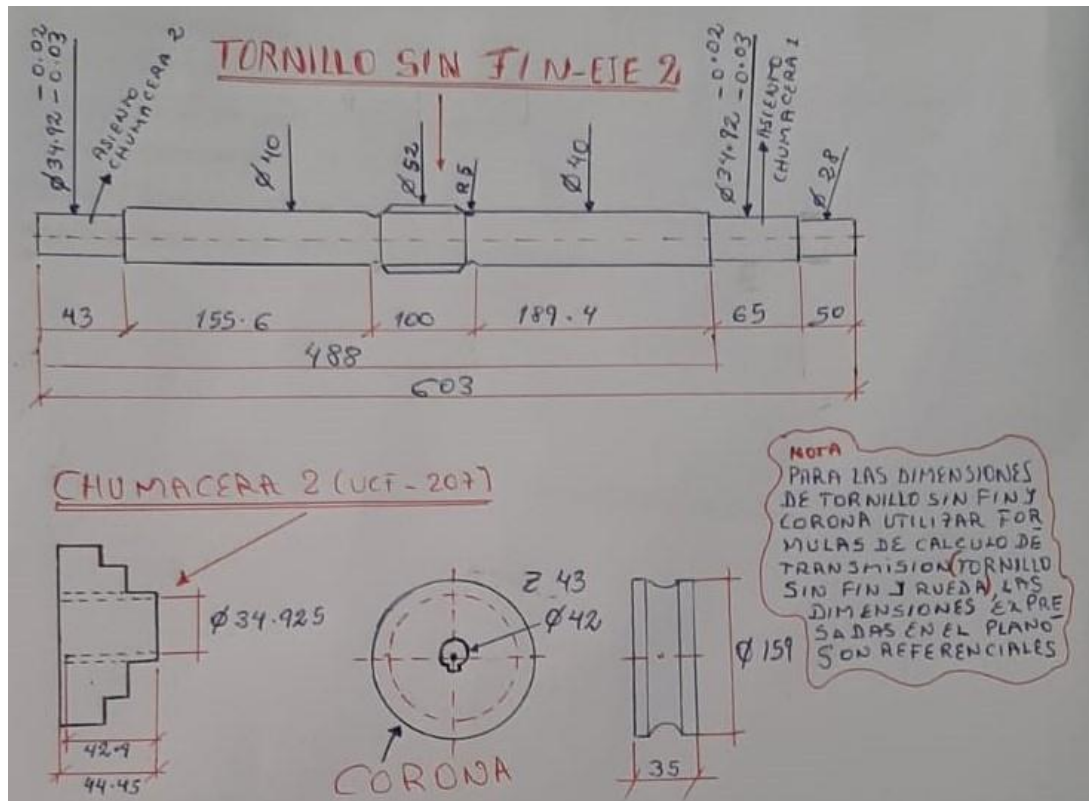 TORNILLO SIN FIN-EJE 2
Ø34.92 -0.02
-0.03
ASIENTO
CHUMACERA 2
Ø40
Ø52
R5
Ø40
Ø34.92 -0.02
-0.03
ASIENTO
CHUMACERA 1
Ø28
43
155.6
100
189.4
65
50
488
603
CHUMACERA 2 (UCF-207)
Ø34.925
42.9
44.45
Z 43
Ø42
CORONA
Ø159
35
NOTA
PARA LAS DIMENSIONES
DE TORNILLO SIN FIN Y
CORONA UTILIZAR FOR
MULAS DE CALCULO DE
TRANSMISION (TORNILLO
SIN FIN Y RUEDA), LAS
DIMENSIONES EXPRE
SADAS EN EL PLANO
SON REFERENCIALES